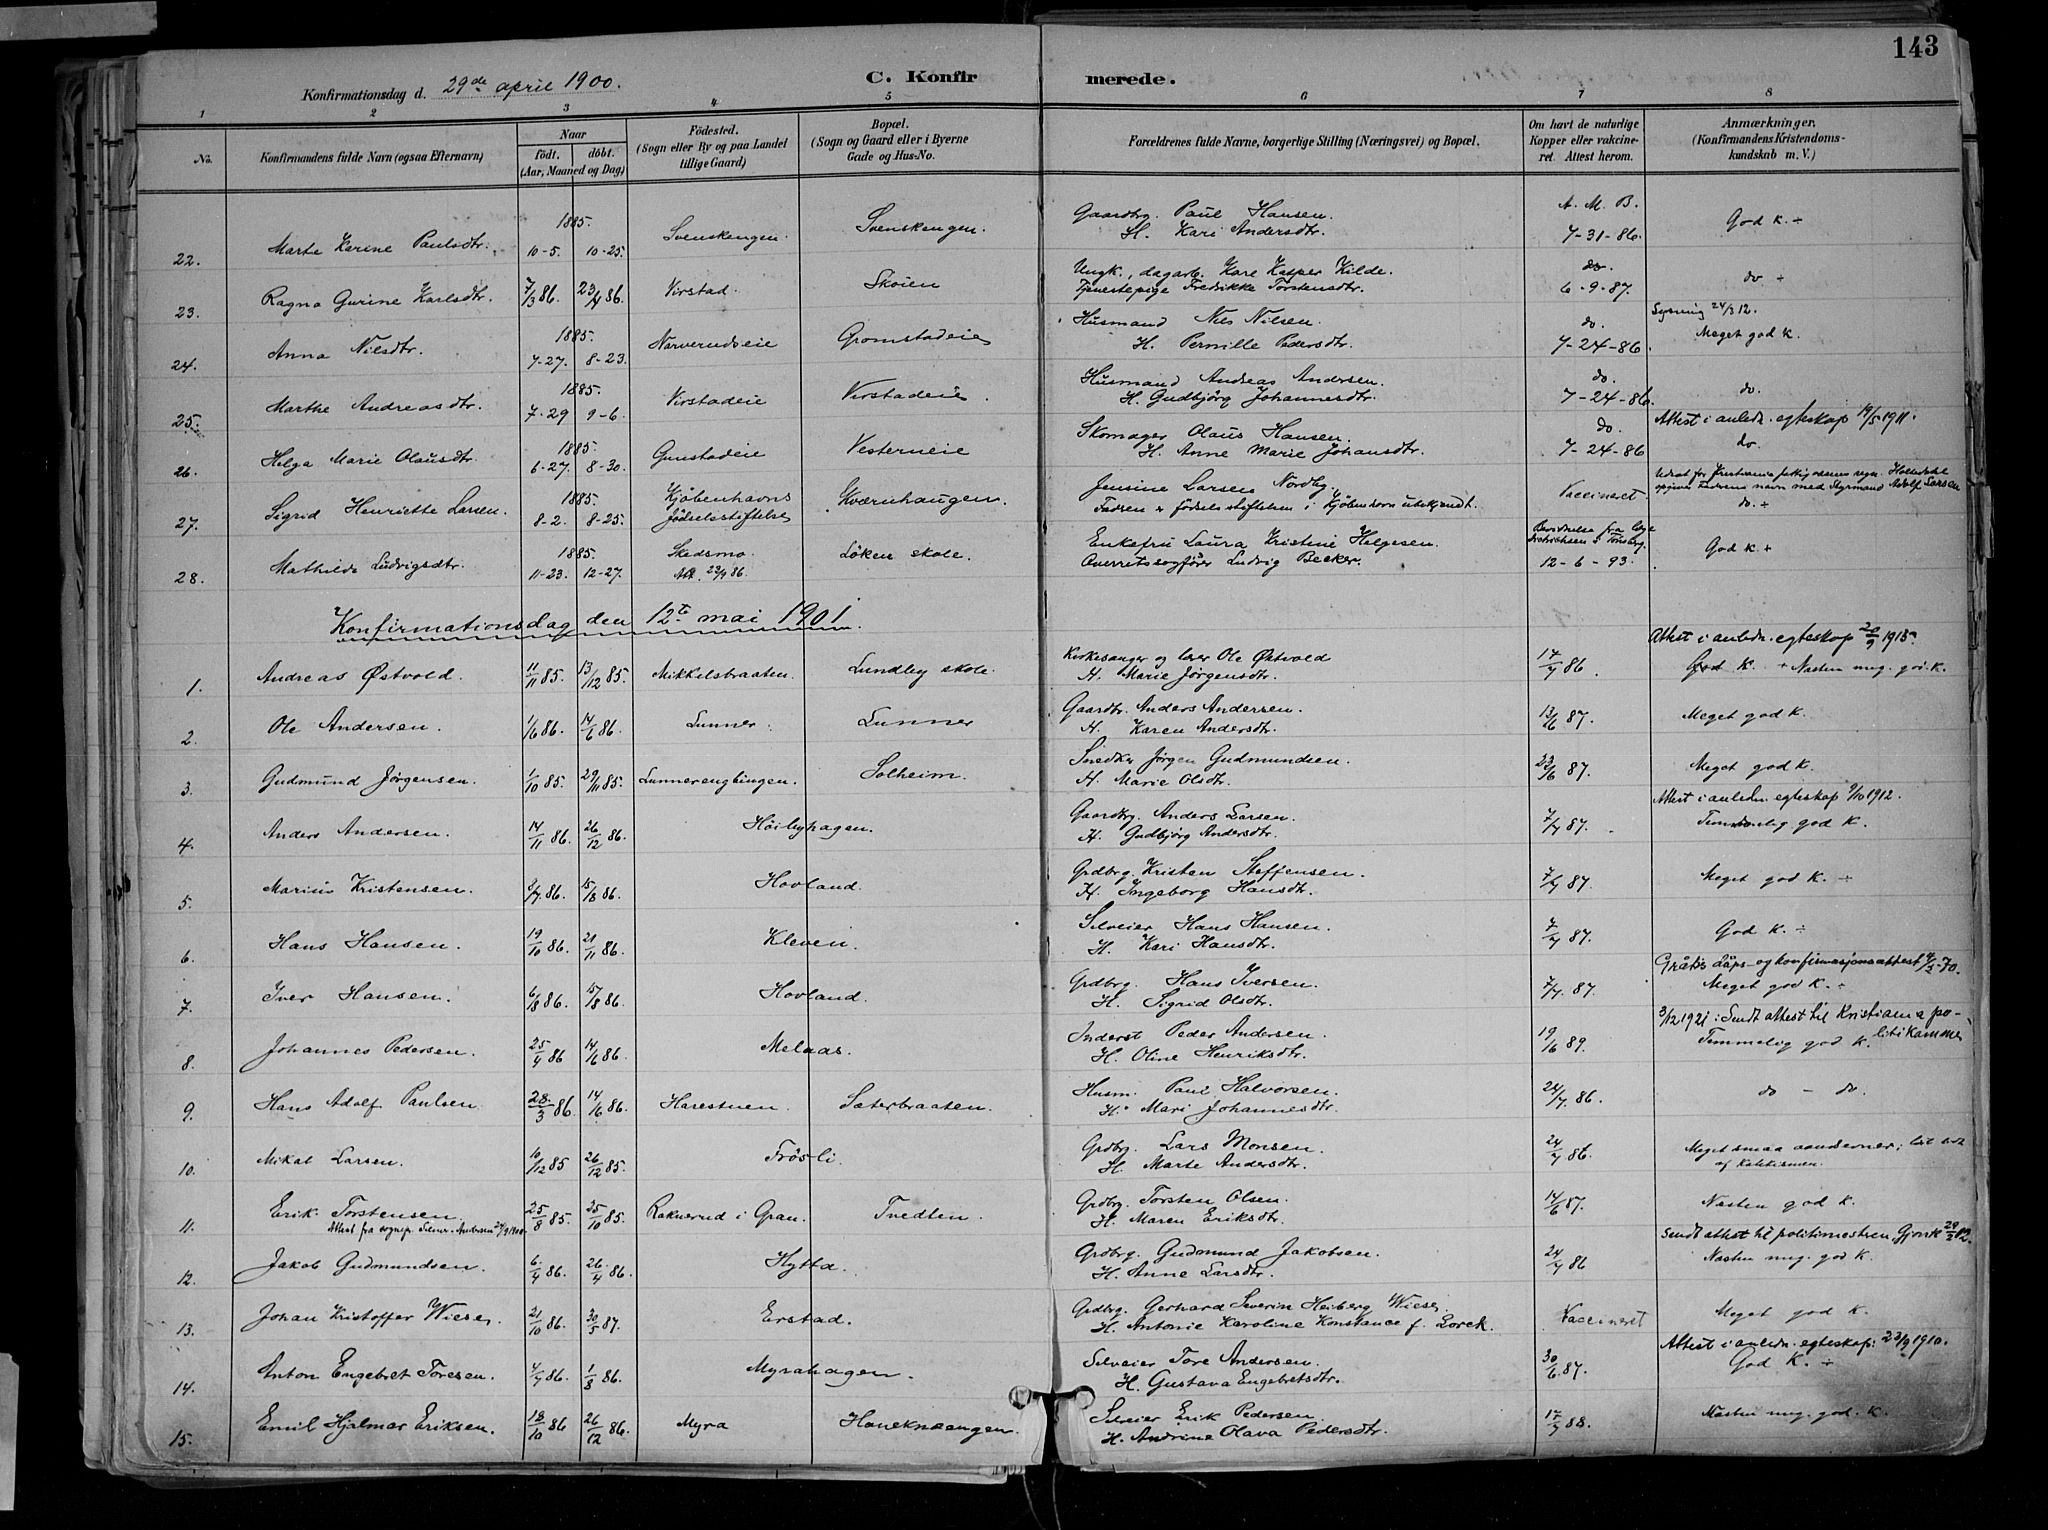 143
Konfirmationsdag d. 29de april 1900.
C. Konfirmerede.
1 2 3 4 5 6 7 8
No. Konfirmandens fulde Navn (ogsaa Efternavn) Naar født. døbt. (Aar, Maaned og Dag) Fødested. (Sogn eller By og paa Landet tillige Gaard) Bopæl. (Sogn og Gaard eller i Byerne Gade og Hus-No. Forældrenes fulde Navne, borgerlige Stilling (Næringsvei) og Bopæl. Om havt de naturlige Kopper eller vakcineret. Attest herom. Anmærkninger, (Konfirmandens Kristendomskundskab m. V.)
22. Marte Karine Paulsdtr. 1885. 10-5. 10-25. Svenskengen. Svenskengen. Gaardbrg. Paul Hansen. A. M. B. God k. ÷
H. Kari Andersdtr. 7-31-86.
23. Ragna Gurine Karlsdtr. 7/3 86. 23/4 86. Virstad. Skoien Ungk., dagarb. Karl Kasper Kilde. do. do ÷
Tjenestepige Fredrikke Torstensdtr. 6-9-87.
24. Anna Nilsdtr. 1885. 7-27. 8-23. Narverudseie Gromstadeie Husmand Nils Nilsen. do. Lysning 24/3 12.
H. Pernille Pedersdtr. 7-24-86. Meget god k.
25. Marthe Andreasdtr. 1885. 7-29 9-6. Virstadeie Virstadeie. Husmand Andreas Andersen. do. do.
H. Gudbjörg Johannesdtr. 7-24-86.
26. Helga Marie Olausdtr. 1885. 6-27. 8-30. Gunstadeie Vesterneie Skomager Olaus Hansen. do. Attest i anledn. egteskap 19/5 1911.
H. Anne Marie Johansdtr. 7-24-86 do.
27. Sigrid Henriette Larsen. 1885. 8-2. 8-25. Kjøbenhavns Fødselsstiftelse Kværnhaugen. Jensine Larsen Nordby. Vaccineret
Faderen fødselsstiftelsen i Kjøbenhavn ubekjendt. opgives Faderens navn med Styrmand Adolf Larsen do. ÷
28. Mathilde Ludvigsdtr. 1885. 11-23. 12-27. Skedsmo. Att. 23/9 86. Löken skole. Enkefru Laura Kristine Helgesen. God k +
Overretssagfører Ludvig Becker. 12-6-93.
Konfirmationsdag den 12te mai 1901.
1. Andreas Østvold. 11/11 85. 13/12 85. Mikkelsbraaten. Lundby skole. Kirkesanger og lærer Ole Østvold 17/7 86. Attest i anledn. egteskap 20/9 1915.
H. Marie Jørgensdtr. God k. + Næsten meg. god k.
2. Ole Andersen. 1/6 86. 14/6 86. Lunner. Lunner Gaardbr. Anders Andersen. 13/6 87. Meget god k.
H. Karen Andersdtr.
3. Gudmund Jørgensen. 1/10 85. 29/11 85. Lunnerengbingen. Solheim. Snedker Jörgen Gudmundsen. 23/6 87. Meget god k.
H. Marie Olsdtr.
4. Anders Andersen. 14/11 86. 26/12 86. Höibyhagen. Gaardbrg. Anders Larsen. 7/7 87. Attest i anledn. egteskap 9/10 1912.
H. Gudbjörg Andersdtr. Temmelig god k.
5. Marius Kristensen. 8/7 86. 15/8 86. Hovland. Grdbrg. Kristen Steffensen. 7/7 87. Meget god k. ÷
H. Ingeborg Hansdt.
6. Hans Hansen. 19/10 86. 21/11 86. Kleven. Selveier Hans Hansen. 7/7 87. God k. ÷
H. Kari Hansdtr.
7. Iver Hansen. 6/8 86. 15/8 86. Hovland. Grdbrg. Hans Iversen. 7/7. 87. Gratis dåps- og konfirmasjonsattest 4/3-70.
H. Sigrid Olsdtr. Meget god k. ÷
8. Johannes Pedersen. 25/4 86 14/6 86. Melaas. Inderst Peder Andersen. 19/6 89. 3/12 1921: Sendt attest til Kristiania politikammer
H. Oline Henriksdtr. Temmelig god k.
9. Hans Adolf Paulsen 28./3 86. 14/6 86. Harestuen. Sæterbraaten. Husm. Paul Halvorsen. 24/7. 86. do - do.
H. Mari Johannesdtr.
10. Mikal Larsen. 10/12 85 26/12 85. Frösli. Grdbrg. Lars Monsen. 24/7 86. Meget smaa aandsevner; lært lidt af katekismen.
H. Marte Andersdtr.
11. Erik Torstensen. 25/8 85. 25/10 85. Raknerud i Gran. Tvedten. Grdbrg. Torsten Olsen. 14/6 87. Næsten god k.
Attest fra sognepr. Andersen 24/9 1900. H. Maren Eriksdtr.
12. Jakob Gudmundsen. 6./4 86. 26./4 86. Hytta. Grdbrg. Gudmund Jakobsen. 24/7 86 Sendt attest til politimestren, Gjøvik 29/2 12.
H. Anne Larsdtr. Næsten meg. god k.
13. Johan Kristoffer Wiese. 21/10 86. 30/5 87. Erstad. Grdbrg. Gerhard Severin Heiberg Wiese. Vaccineret Meget god k.
H. Antonie Karoline Konstance f. Lorck.
14. Anton Engebret Toresen. 4/7 86. 1/8 86. Myrahagen. Selveier Tore Andersen. 30/6. 87. Attest i anledn. egteskap: 23/9 1910.
H. Gustava Engebretsdtr. God k. ÷
15. Emil Hjalmar Eriksen. 18/10 86 26/12 86. Myra Haneknæengen. Selveier Erik Pedersen. 17/7 88. Næsten meg. god. k.
H. Andrine Olava Pedersdtr.